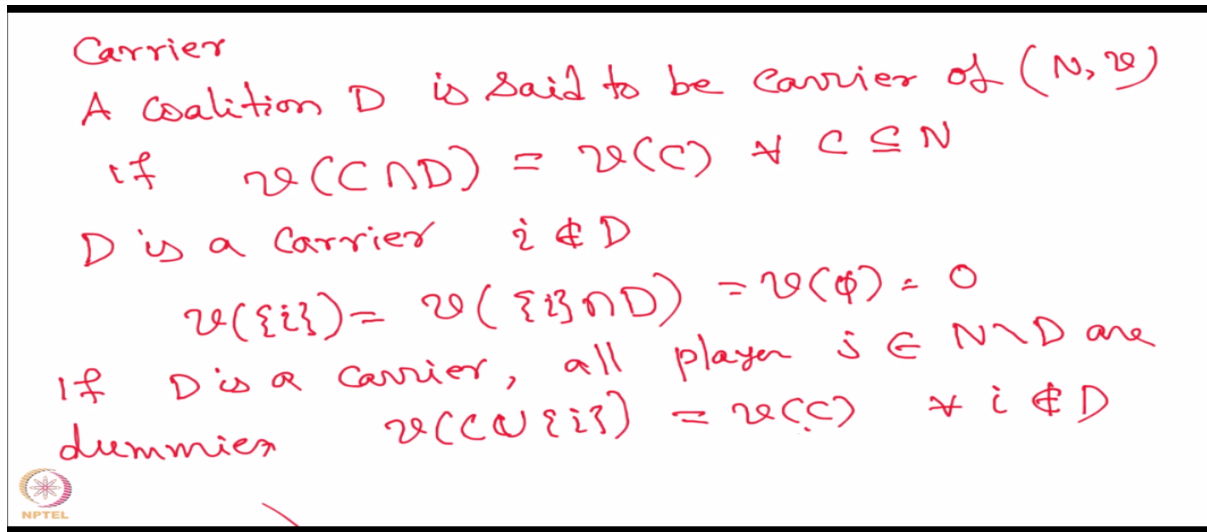 Carrier
A Coalition D is said to be carrier of (N, v)
if v(C ∩ D) = v(C) ∀ C ⊆ N
D is a Carrier i ∉ D
v({i}) = v({i} ∩ D) = v(φ) = 0
If D is a carrier, all player j ∈ N \ D are
dummies v(C ∪ {i}) = v(C) ∀ i ∉ D
NPTEL